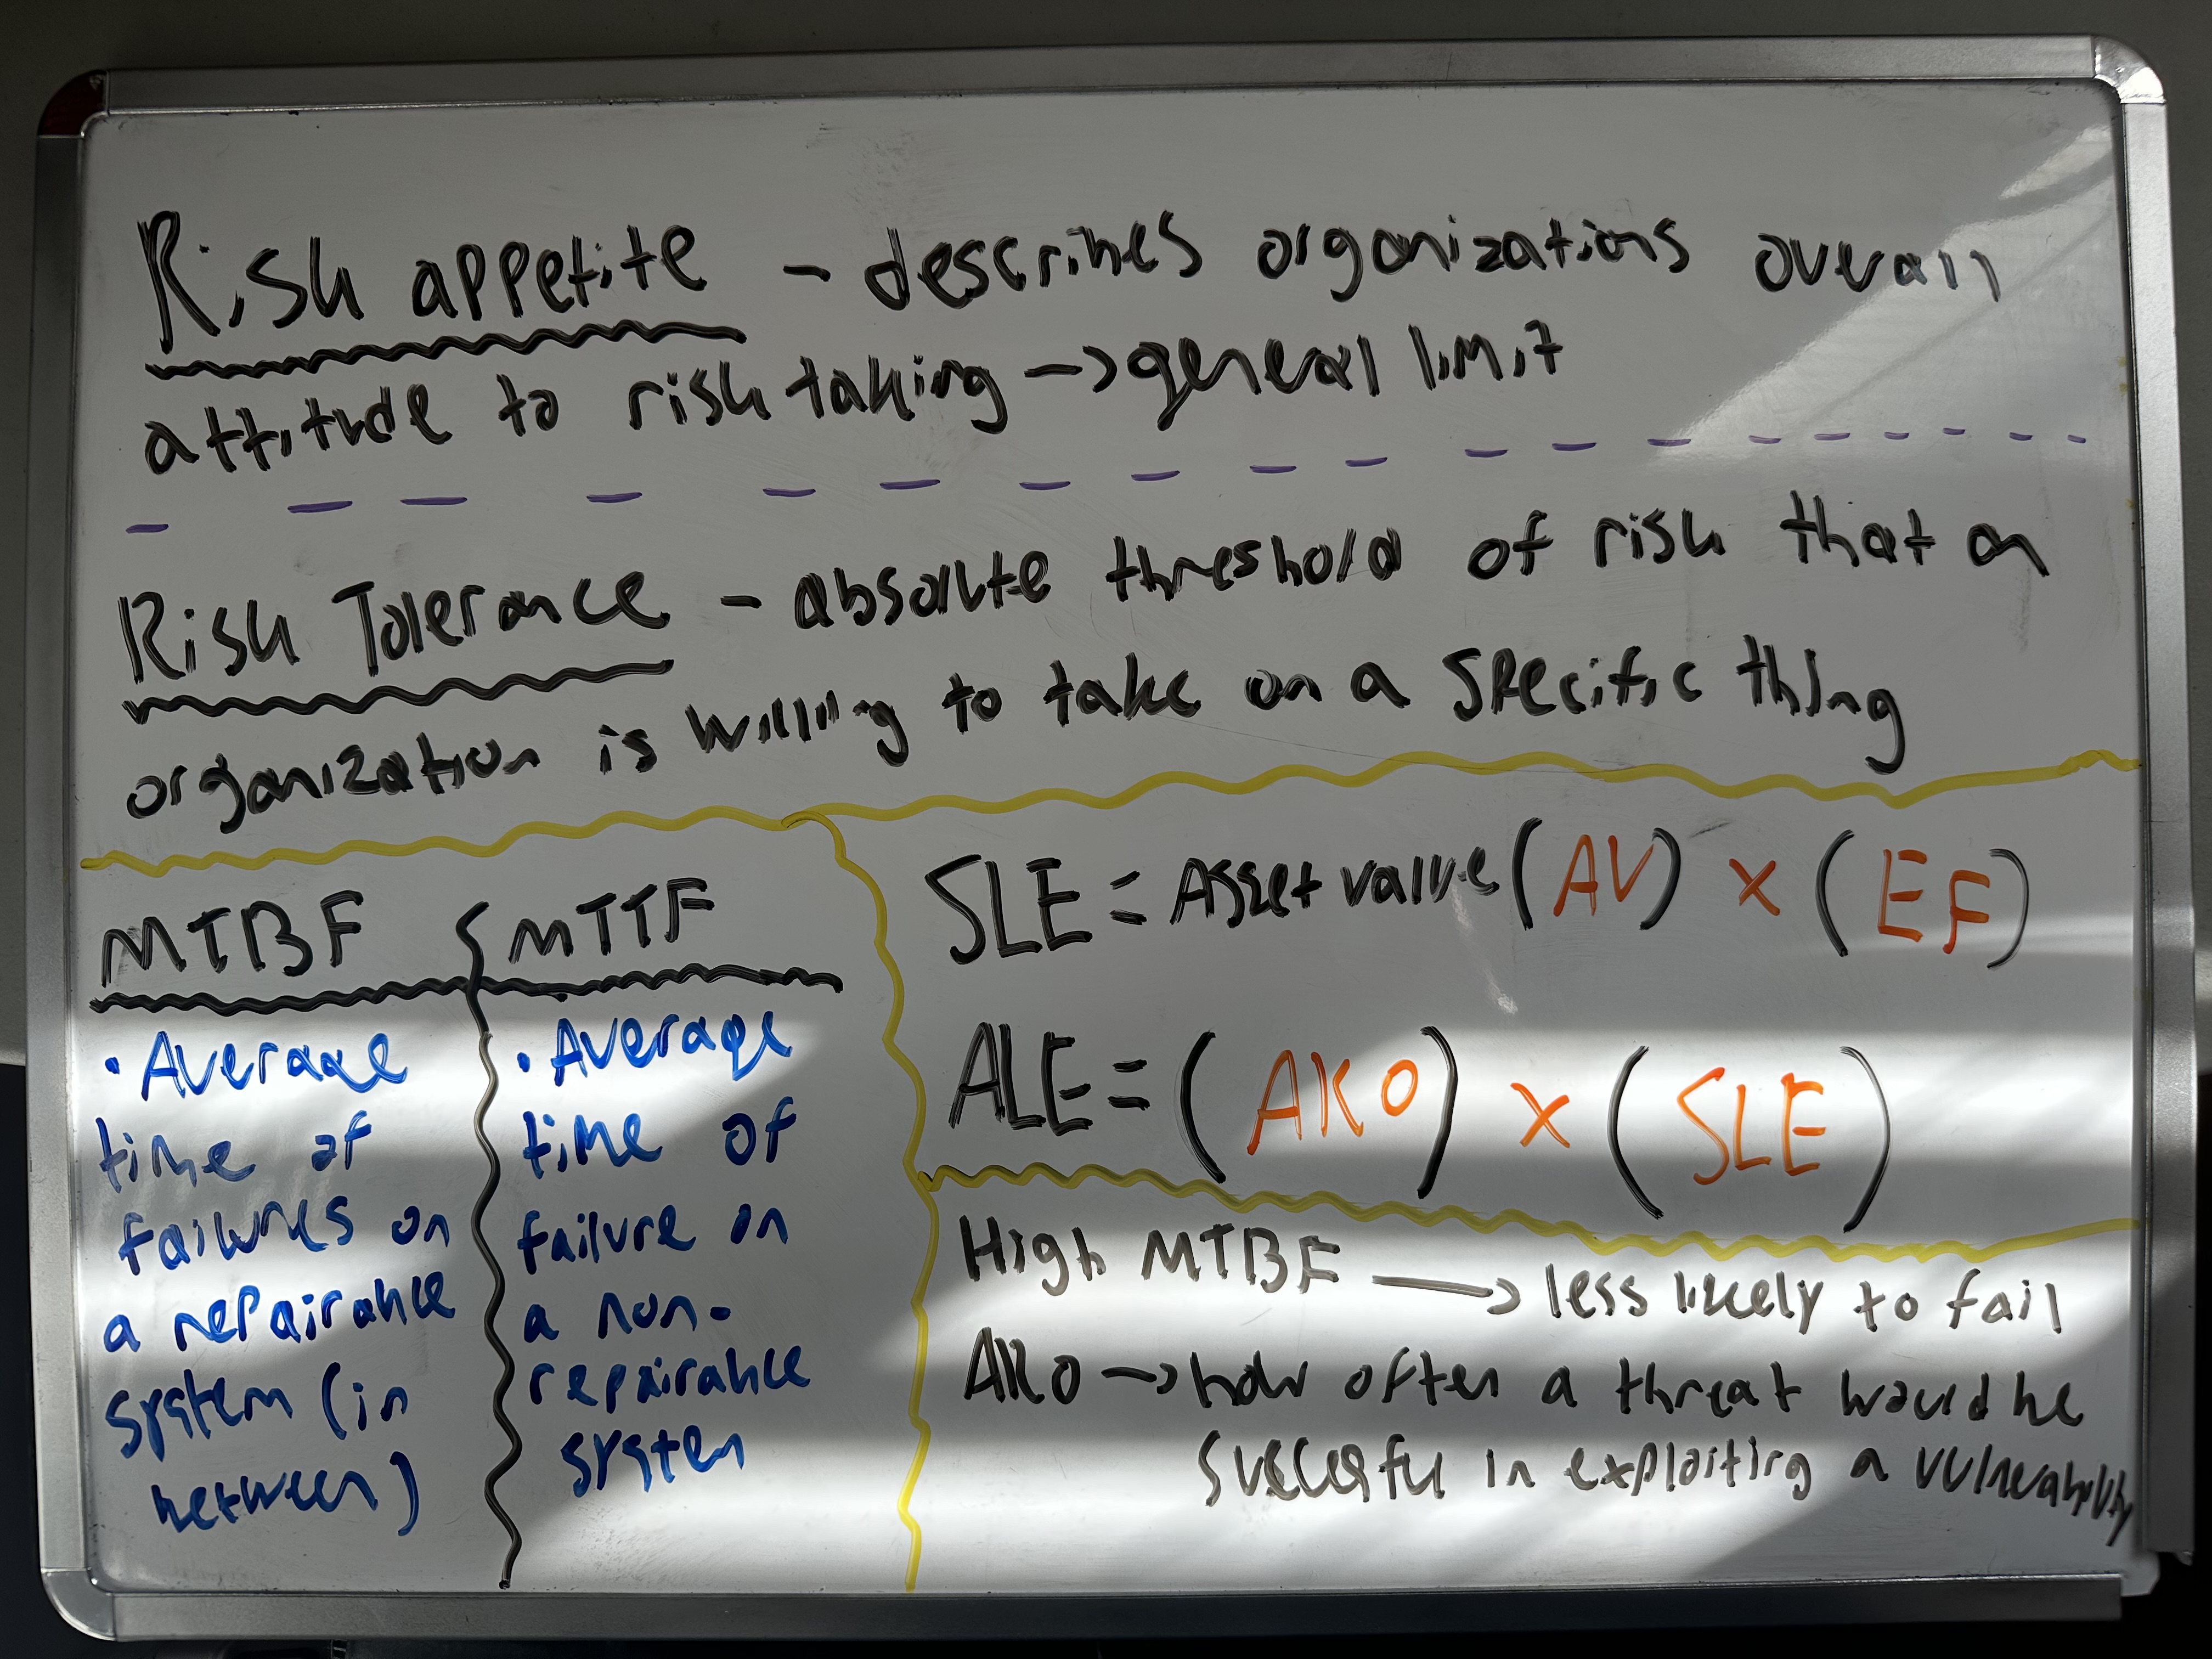 Risk appetite - describes organizations overall
attitude to risk taking -> general limit
Risk Tolerance - absolute threshold of risk that an
organization is willing to take on a specific thing
MTBF
• Average
time of
failures on
a repairable
system (in
between)
MTTF
• Average
time of
failure in
a non-
repairable
system
SLE = Asset value (AV) x (EF)
ALE = (ARO) x (SLE)
High MTBF -> less likely to fail
ARO -> how often a threat would be
succesful in exploiting a vulnerability